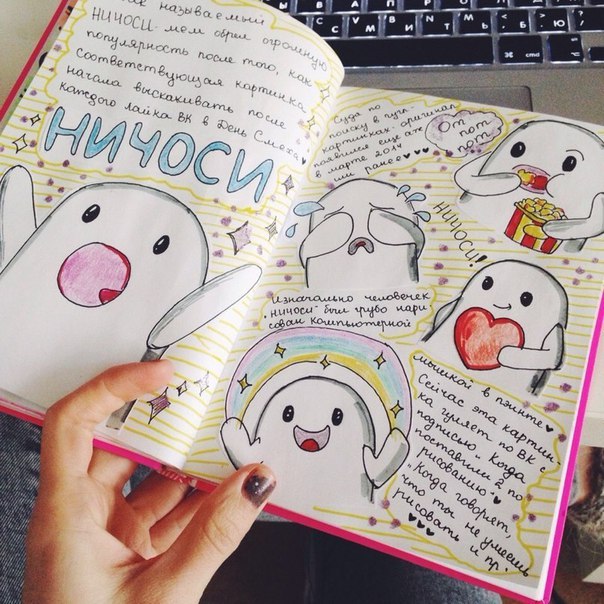 Так называемый
НИЧОСИ-мем обрел огромную
популярность после того, как
соответствующая картинка
начала выскакивать после
каждого лайка ВК в День Смеха
НИЧОСИ
Судя по
поиску в гугл-
картинках, оригинал
появился еще аж
в марте 2014
или ранее
Ом
ном
ном
НИЧОСИ!
Изначально человечек
"ничоси" был грубо нари
сован компьютерной
мышкой в пэинте
Сейчас эта картин,
ка гуляет по ВК с
подписью "Когда
поставили 2 по
рисованию"
"Когда говорят,
что ты не умеешь
рисовать и пр.